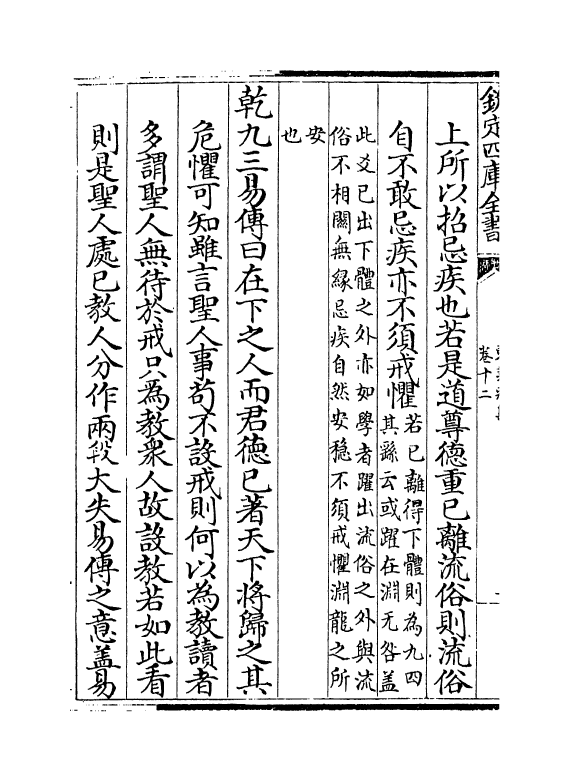 欽定四庫全書
卷十二
上所以招忌疾也若是道尊德重已離流俗則流俗
自不敢忌疾亦不須戒懼若已離得下體則為九四
其繇云或躍在淵无咎盖
此爻已出下體之外亦如學者躍出流俗之外與流
俗不相關無緣忌疾自然安穏不須戒懼淵龍之所
安
也
乾九三易傳曰在下之人而君德已著天下將歸之其
危懼可知雖言聖人事苟不設戒則何以為教讀者
多謂聖人無待於戒只為教衆人故設教若如此看
則是聖人處已教人分作兩段大失易傳之意盖易